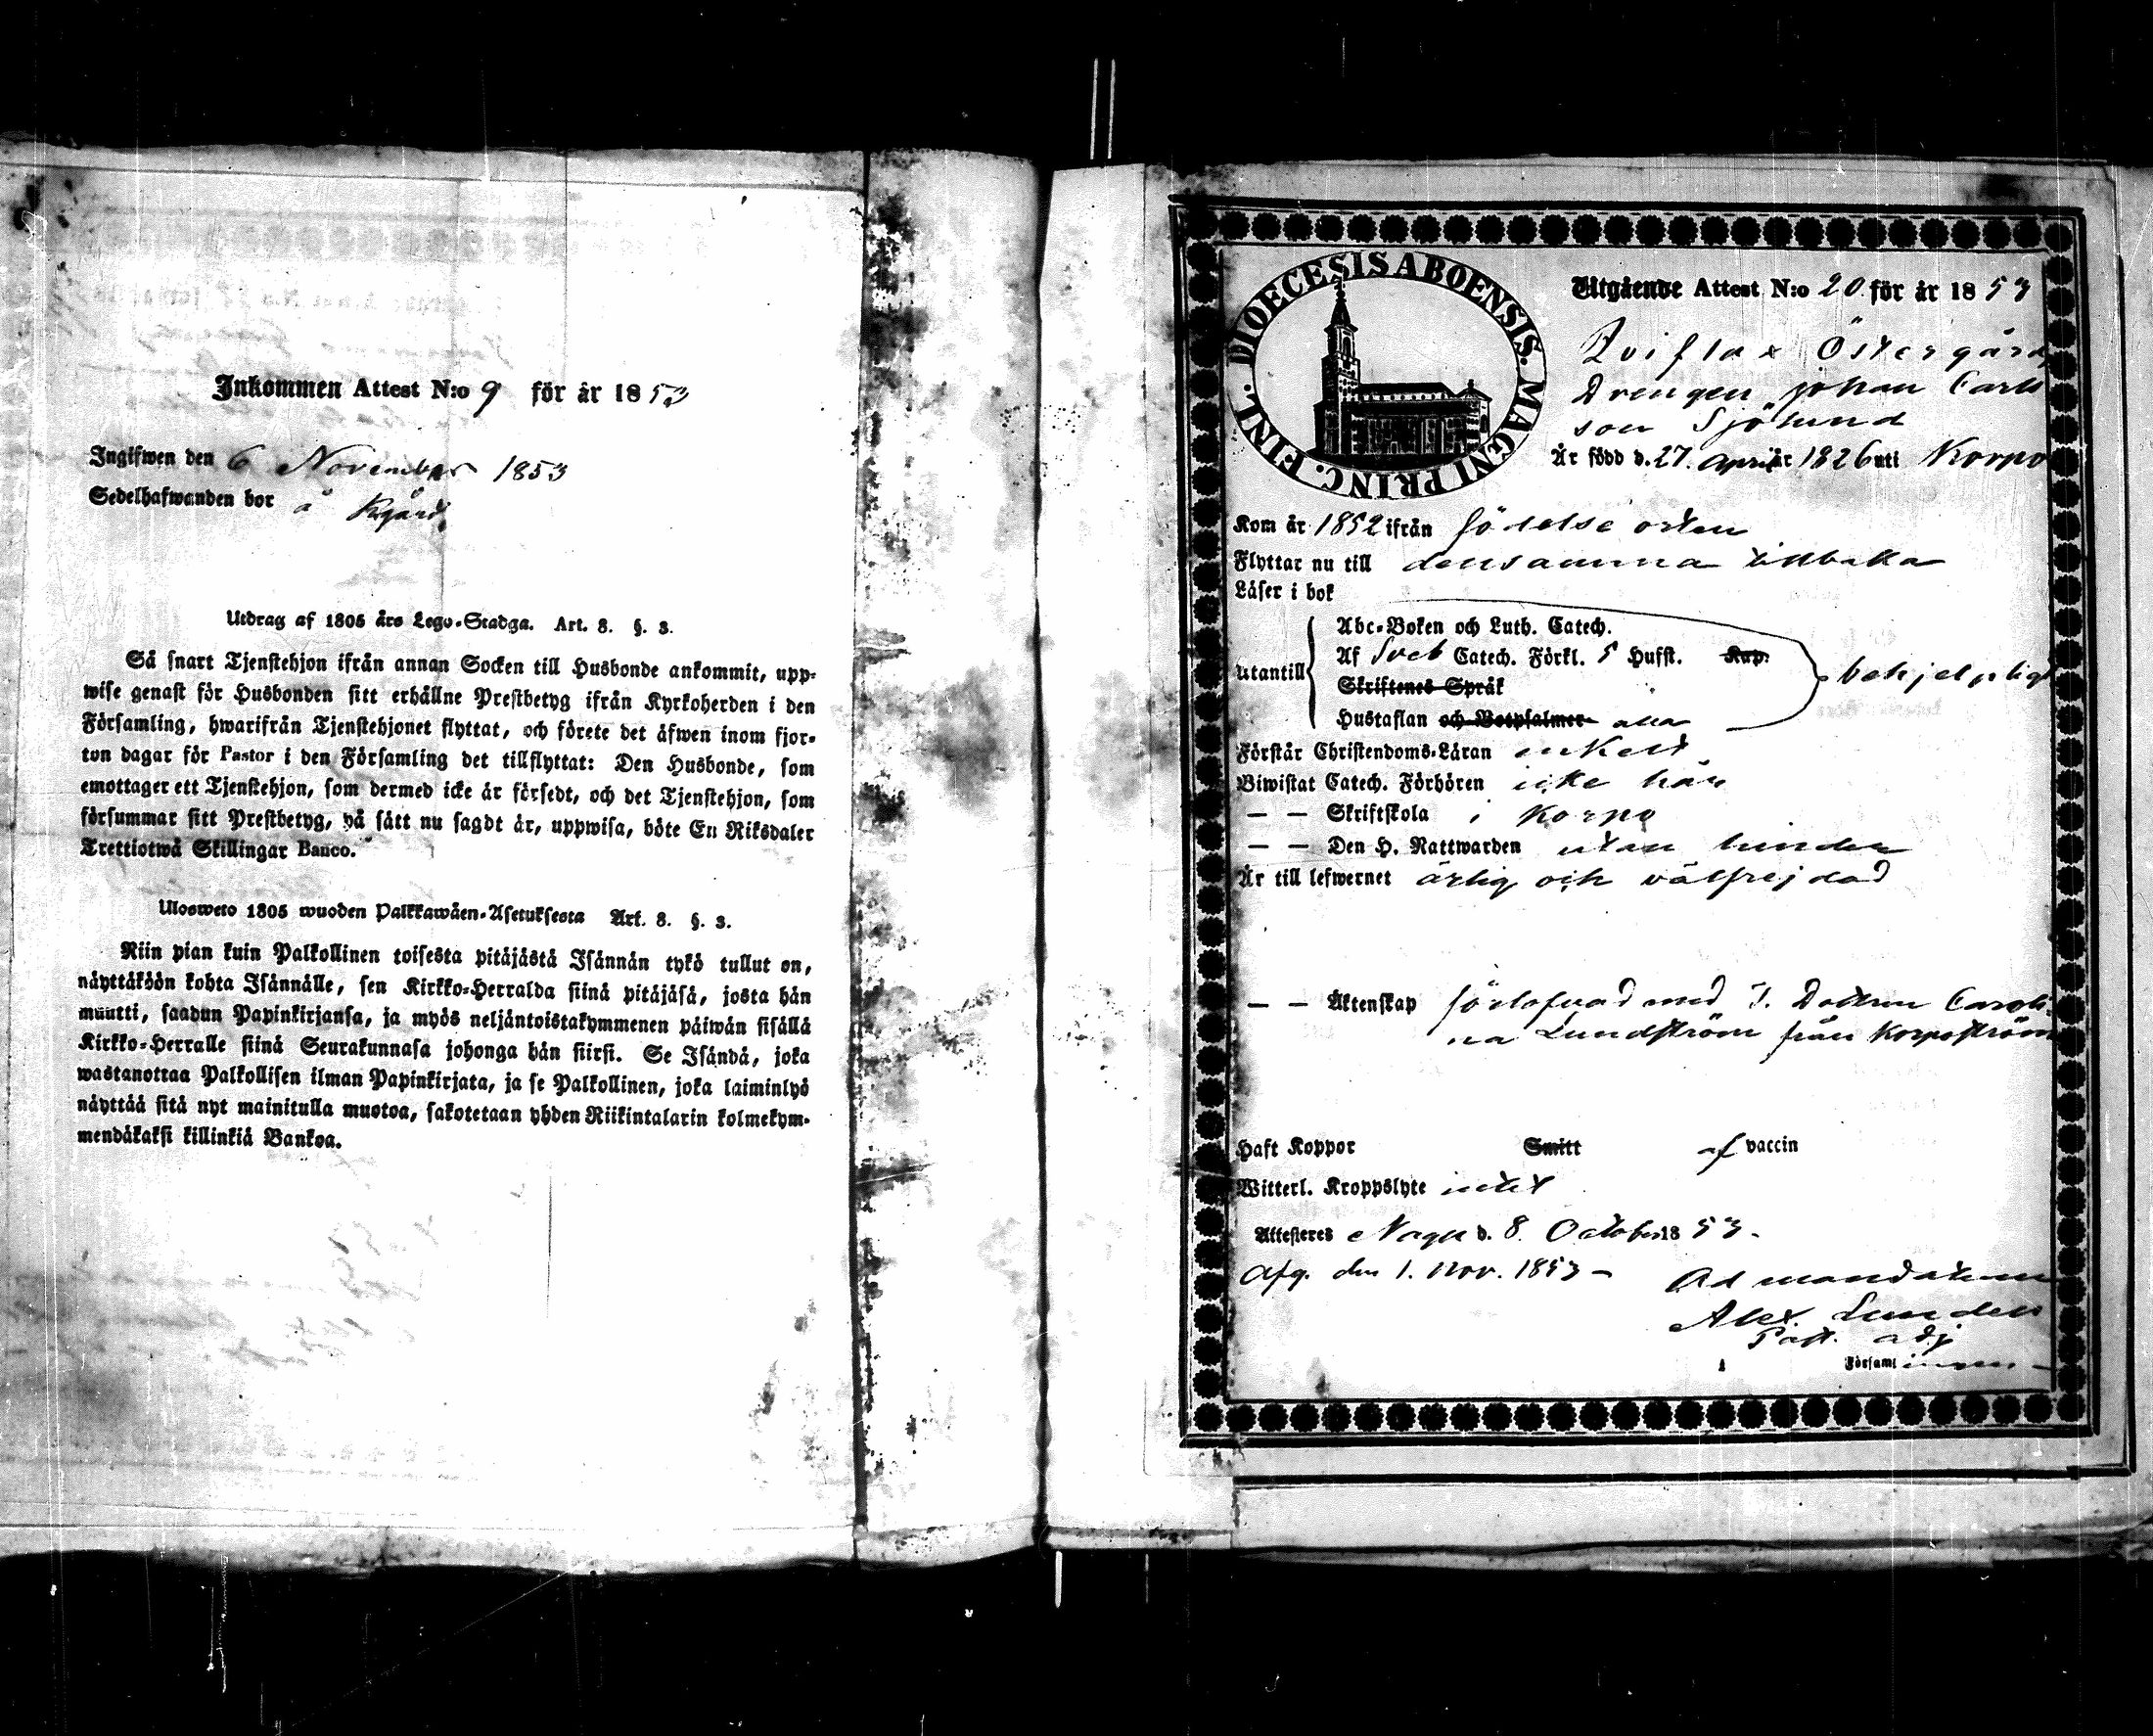 Inkommen Attest N:o 9 för år 1853
Ingifwen den 6 November 1853
Sedelhafwanden bor å
Utdrag af 1805 års Lego-Stadga. Art. 8. §. 3.
Så snart Tjenstehjon ifrån annan Socken till Husbonde ankommit, upp-
wise genast för Husbonden sitt erhållne Prestbetyg ifrån Kyrkoherden i den
Församling, hwarifrån Tjenstehjonet flyttat, och förete det äfwen inom fjor-
ton dagar för Pastor i den Församling det tillflyttat: Den Husbonde, som
emottager ett Tjenstehjon, som dermed icke är försedt, och det Tjenstehjon, som
försummar sitt Prestbetyg, på sätt nu sagdt är, uppwisa, böte En Riksdaler
Trettiotwå Skillingar Banco.
Ulosweto 1805 wuoden Palkkawäen-Asetuksesta Art. 8. §. 3.
Niin pian kuin Palkollinen toisesta pitäjästä Isännän tykö tullut on,
näyttäköön kohta Isännälle, sen Kirkko-Herralda siinä pitäjäsä, josta hän
muutti, saadun Papinkirjansa, ja myös neljäntoistakymmenen päiwän sisällä
Kirkko-Herralle siinä Seurakunnasa johonga hän siirsi. Se Isändä, joka
wastanottaa Palkollisen ilman Papinkirjata, ja se Palkollinen, joka laiminlyö
näyttää sitä nyt mainitulla muotoa, sakotetaan yhden Riikintalarin kolmekym-
mendäkaksi killinkiä Bankoa.
DIOECESIS ABOENSIS. MAGNI PRINC. FINL.
Utgående Attest N:o 20 för år 1853
Qviflax Östergård
Drengen Johan Carls
son Sjölund
Är född d. 27. April år 1826 uti Korpo
Kom år 1852 ifrån födelse orten
Flyttar nu till densamma tillbaka
Läser i bok
Abc-Boken och Luth. Catech.
utantill Af Sveb Catech. Förkl. 5 Hufst. Kap. behjelpligt
Skriftenes Språk
Hustaflan och Botpsalmer alla
Förstår Christendoms-Läran enkelt
Biwistat Catech. Förhören icke här
— — Skriftskola i Korpo
— — Den H. Nattwarden utan hinder
Är till lefwernet ärlig och välfrejdad
— — Äktenskap förlofvad med T. Dottern Caroli-
na Lundström från Korpoström
Haft Koppor Smitt af vaccin
Witterl. Kroppslyte intet
Attesteres Nagu d. 8 October 1853.
Afg. den 1. Nov. 1853 –
Ad mandatum
Alex. Lundell
Past. adj
i Församl